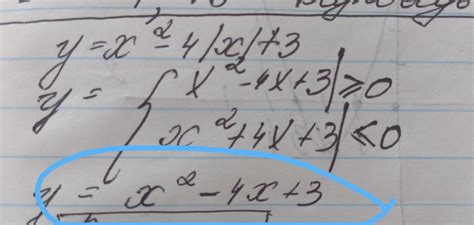 y = x² - 4|x| + 3
y = { x² - 4x + 3 | ≥ 0
x² + 4x + 3 | ≤ 0
y = x² - 4x + 3